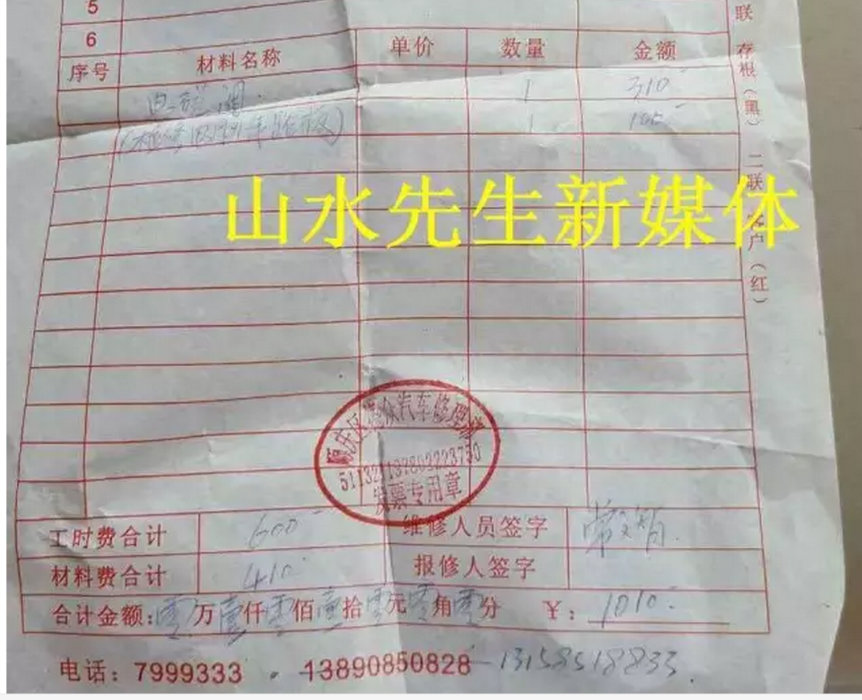 5
6
序号 材料名称 单价 数量 金额
电磁阀 1 310
1 100
山水先生新媒体
联 存根(黑) 二联 客户(红)
顺庆区 众汽车修理
发票专用章
工时费合计 600 维修人员签字
材料费合计 410 报修人签字
合计金额:零万壹仟零佰壹拾零元零角零分 ¥:1010
电话:7999333 13890850828 13158518833